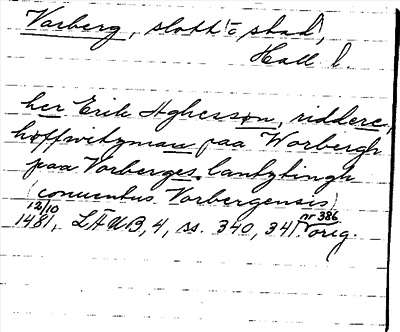 Varberg, slott (o stad)
Hall l.
her Erik Aghesson, riddere,
høffwitzman paa Worbergh
paa Vorberges lantztingh
(conuentus Vorbergensis)
12/10 nr 386
1481, LÄUB, 4, ss. 340, 341. orig.